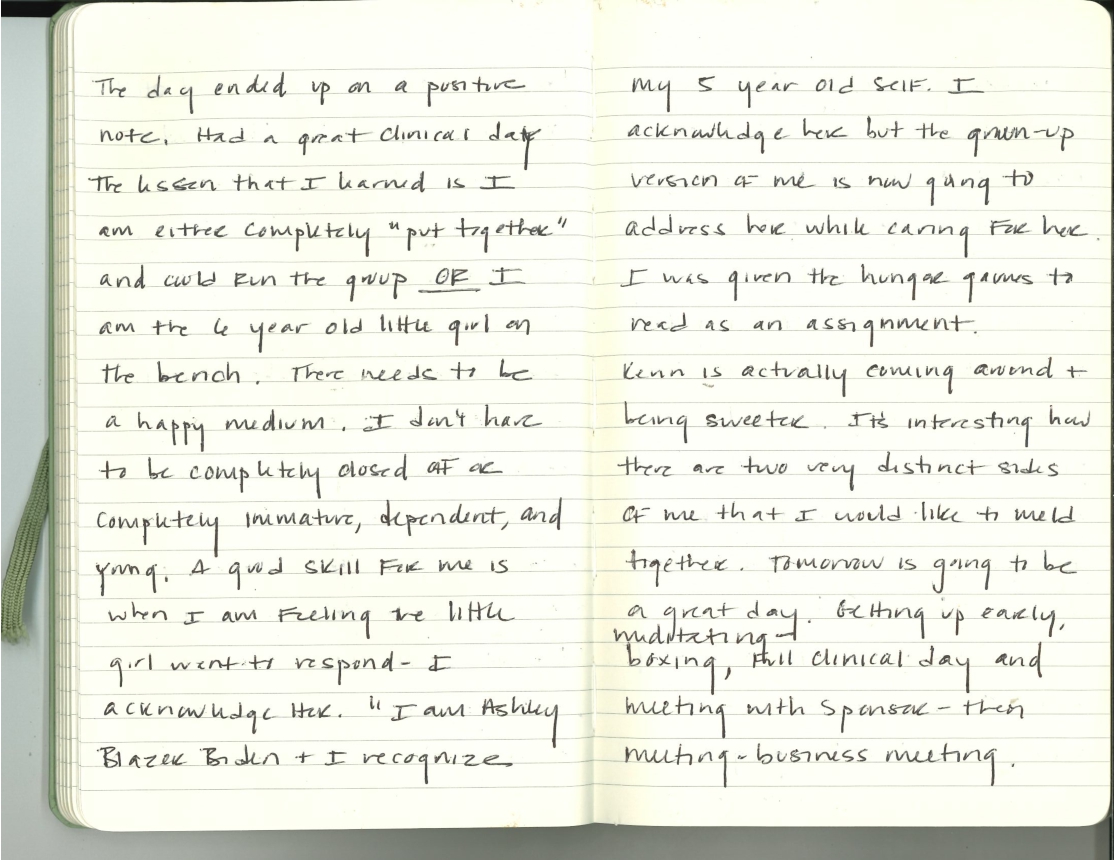 The day ended up on a positive
note. Had a great clinical day
The lesson that I learned is I
am either completely "put together"
and could run the group OR I
am the 6 year old little girl on
the bench. There needs to be
a happy medium. I don't have
to be completely closed off or
completely immature, dependent, and
young. A good skill for me is
when I am feeling the little
girl want to respond - I
acknowledge her. "I am Ashley
Blazer Biden + I recognize
my 5 year old self. I
acknowledge her but the grown-up
version of me is now going to
address her while caring for her.
I was given the hunger games to
read as an assignment.
Kenn is actually coming around +
being sweeter. It's interesting how
there are two very distinct sides
of me that I would like to meld
together. Tomorrow is going to be
a great day. Getting up early,
meditating -
boxing, full clinical day and
meeting with Sponsor - then
meeting - business meeting.